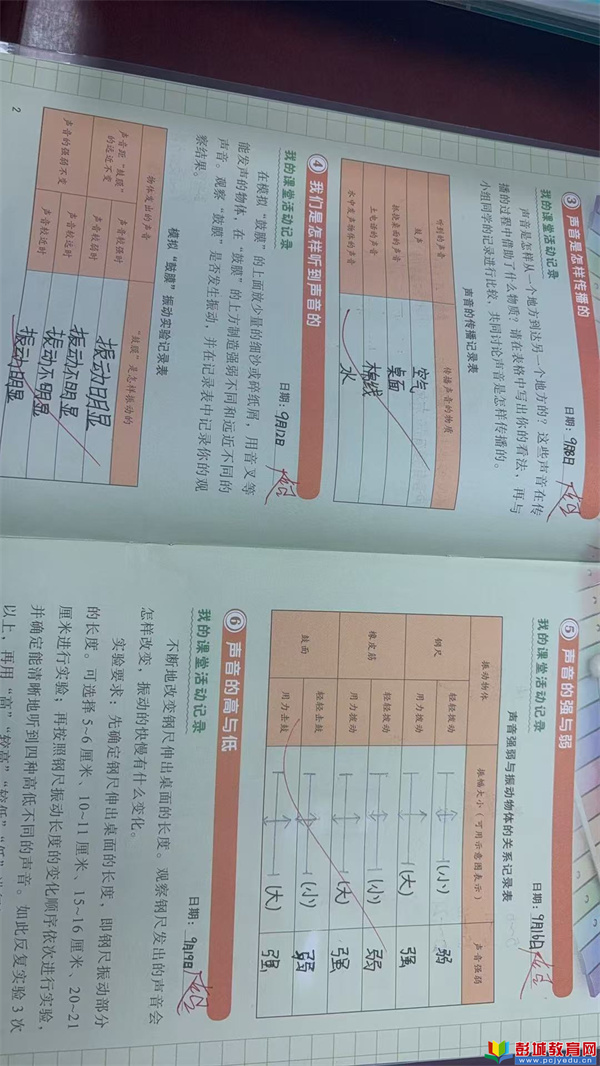 ③ 声音是怎样传播的
日期：9月8日
我的课堂活动记录
声音是怎样从一个地方到达另一个地方的？这些声音在传
播的过程中借助了什么物质？请在表格中写出你的看法，再与
小组同学的记录进行比较，共同讨论声音是怎样传播的。
声音的传播记录表
听到的声音 传播声音的物质
鼓声 空气
抓挠桌面的声音 桌面
土电话的声音 棉线
水中发声物体的声音 水
④ 我们是怎样听到声音的
日期：9月12日
我的课堂活动记录
在模拟“鼓膜”的上面放少量的细沙或碎纸屑，用音叉等
能发声的物体，在“鼓膜”的上方制造强弱不同和远近不同的
声音。观察“鼓膜”是否发生振动，并在记录表中记录你的观
察结果。
模拟“鼓膜”振动实验记录表
物体发出的声音 “鼓膜”是怎样振动的
声音距“鼓膜”的远近不变 声音较强时 振动明显
声音较弱时 振动不明显
声音的强弱不变 声音较远时 振动不明显
声音较近时 振动明显
2
⑤ 声音的强与弱
日期：9月16日
我的课堂活动记录
声音强弱与振动物体的关系记录表
振动物体 振幅大小（可用示意图表示） 声音强弱
钢尺 轻轻拨动 (小) 弱
用力拨动 (大) 强
橡皮筋 轻轻拨动 (小) 弱
用力拨动 (大) 强
鼓面 轻轻击鼓 (小) 弱
用力击鼓 (大) 强
⑥ 声音的高与低
日期：9月19日
我的课堂活动记录
不断地改变钢尺伸出桌面的长度。观察钢尺发出的声音会
怎样改变，振动的快慢有什么变化。
实验要求：先确定钢尺伸出桌面的长度，即钢尺振动部分
的长度。可选择 5~6 厘米、10~11 厘米、15~16 厘米、20~21
厘米进行实验；再按照钢尺振动长度的变化顺序依次进行实验，
并确定能清晰地听到四种高低不同的声音。如此反复实验 3 次
以上，再用“高”“较高”“较低”“低”
彭城教育网
www.pcjyedu.cn